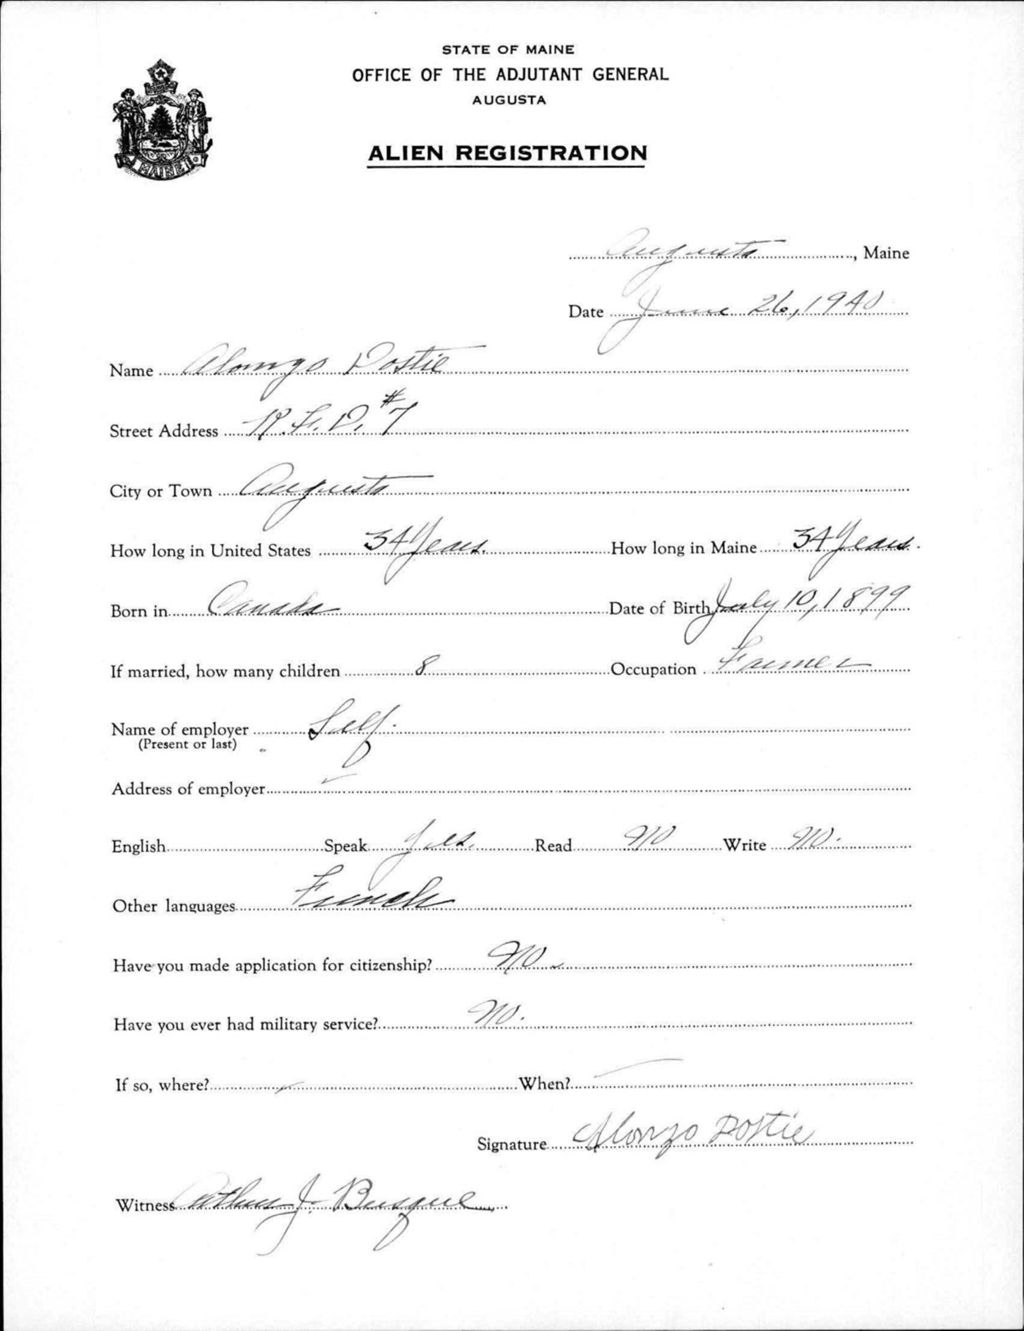 STATE OF MAINE
OFFICE OF THE ADJUTANT GENERAL
AUGUSTA
ALIEN REGISTRATION
MAINE
Augusta, Maine
Date June 26, 1940
Name Alonzo Dostie
Street Address R.F.D. #7
City or Town Augusta
How long in United States 34 Years. How long in Maine 34 Years.
Born in Canada Date of Birth July 10, 1899
If married, how many children 8 Occupation Farmer
Name of employer Self.
(Present or last)
Address of employer
English Speak Yes. Read No Write No.
Other languages French
Have you made application for citizenship? No
Have you ever had military service? No.
If so, where? When?
Signature Alonzo Dostie
Witness Arthur J. Busque